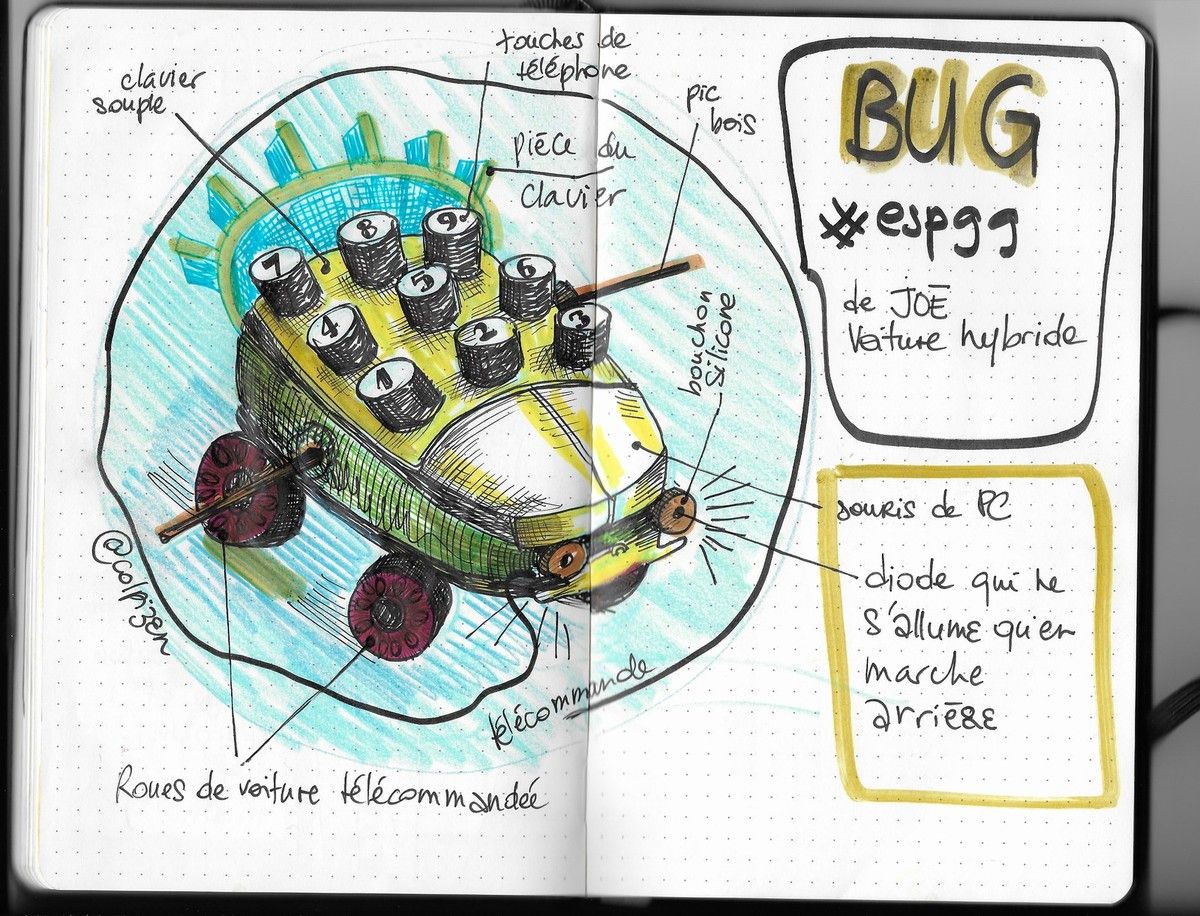 touches de
téléphone
clavier
souple
pièce du
clavier
pic
bois
7
8
9
4
5
6
1
2
3
bouchon
silicone
@colpizen
télécommande
Roues de voiture télécommandée
BUG
#espgg
de JOE
Voiture hybride
souris de PC
diode qui ne
s'allume qu'en
marche
arrière